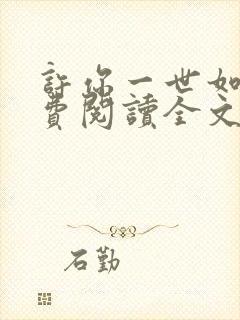 許你一世如
費閱讀全文
石勤